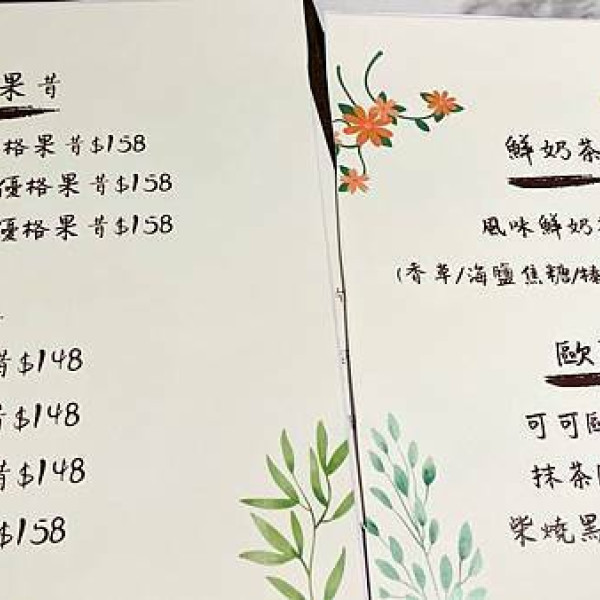 果昔
格果昔$158
優格果昔$158
優格果昔$158
昔$148
昔$148
昔$148
$158
鮮奶茶
風味鮮奶
(香草/海鹽焦糖/榛
歐
可可歐
抹茶
柴燒黑